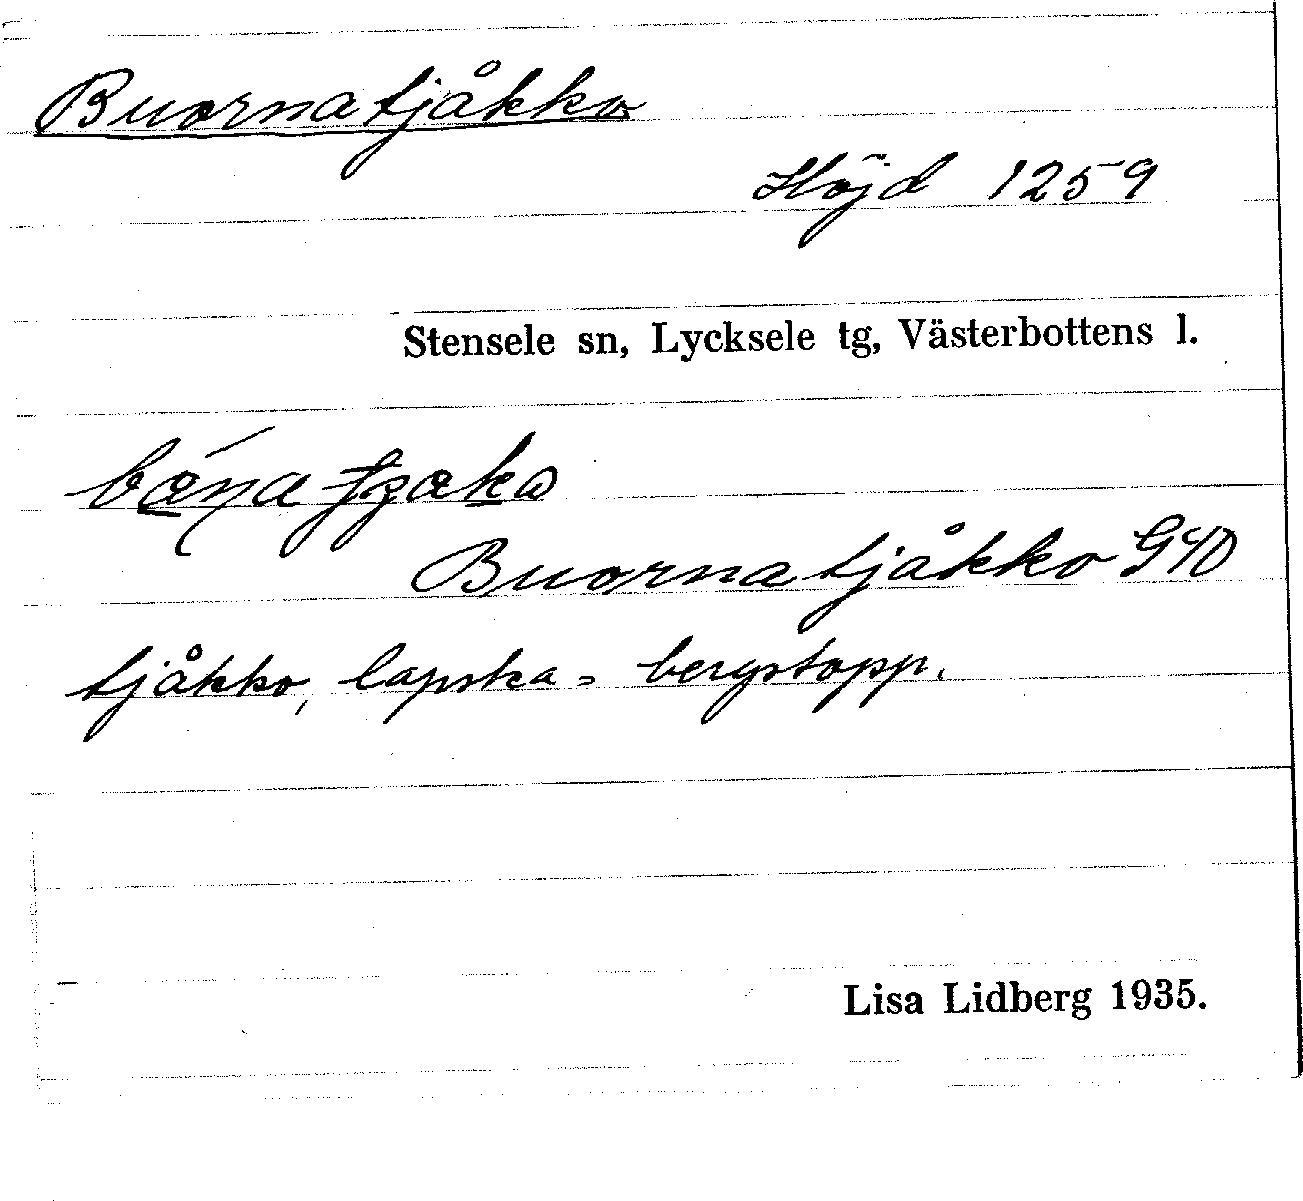 Buornatjåkko
Höjd 1259
Stensele sn, Lycksele tg, Västerbottens l.
Buornatjåkko
tjåkko, lapska = bergstopp.
Lisa Lidberg 1935.